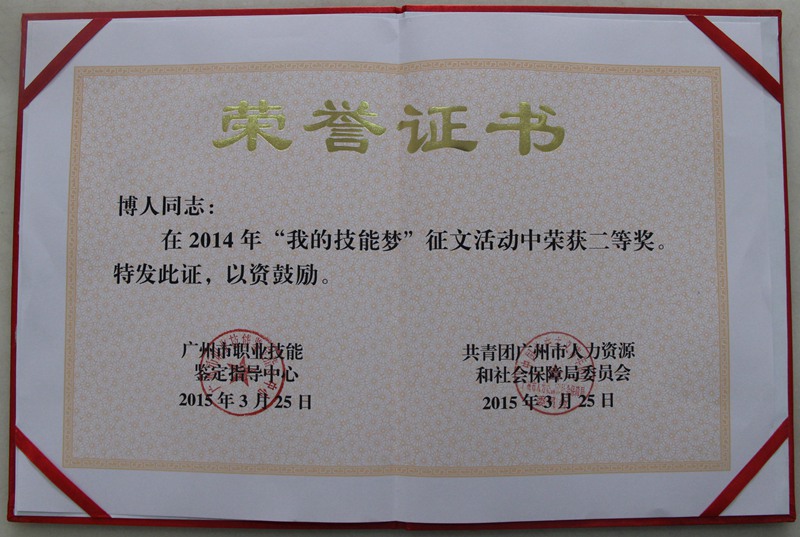 荣誉证书
博人同志：
在 2014 年“我的技能梦”征文活动中荣获二等奖。
特发此证，以资鼓励。
广州市职业技能
鉴定指导中心
2015 年 3 月 25 日
共青团广州市人力资源
和社会保障局委员会
2015 年 3 月 25 日